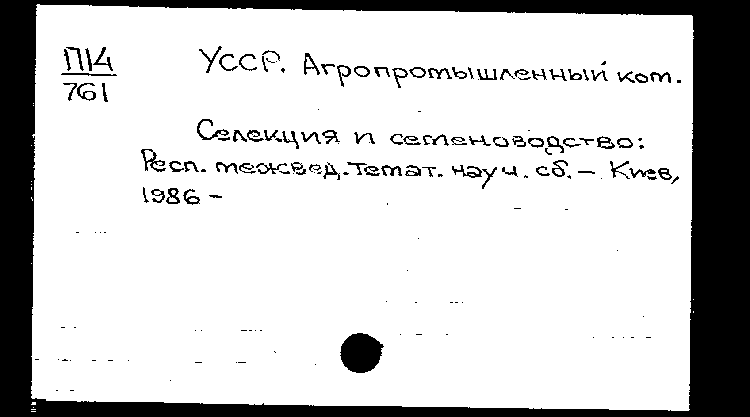 П14
761
УССР. Агропромышленный ком.
Селекция и семеноводство:
Респ. межвед. темат. науч. сб. – Киев,
1986 –